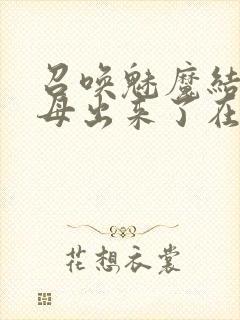 召唤魅魔结
母出来了在
花想衣裳